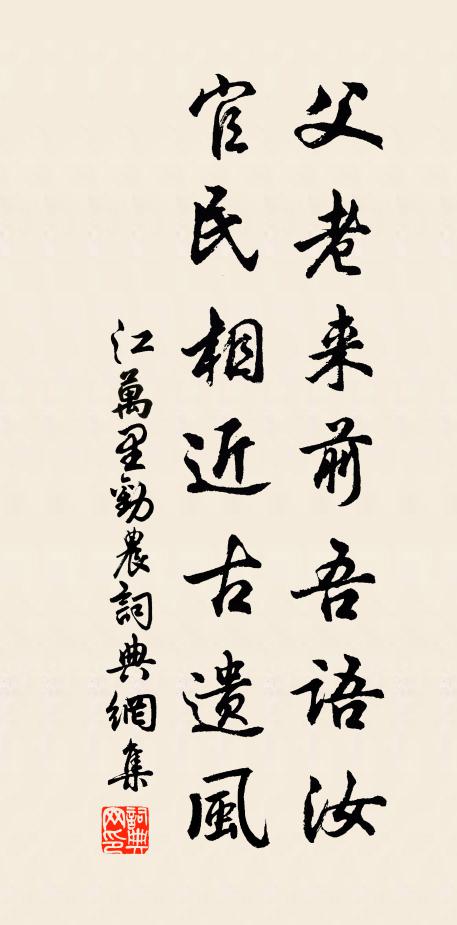 父老来前吾語汝
官民相近古遺風
江萬里勸農詞典網集
詞典网印